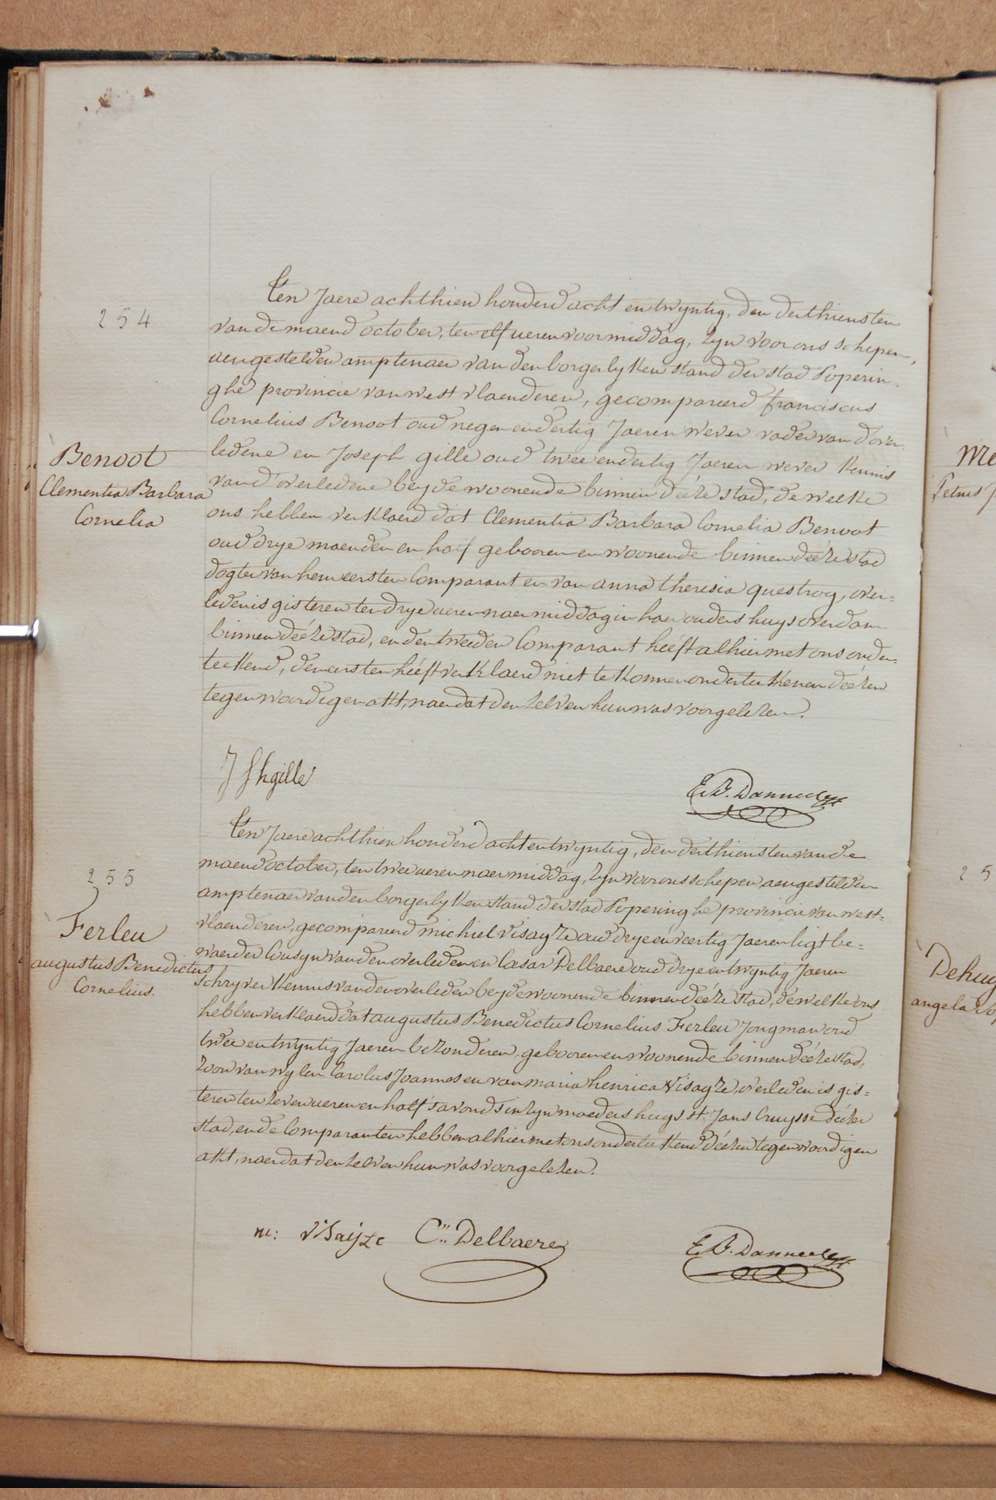 254
Benoot
Clementia Barbara
Cornelia
Ten Jaere achthien honderd acht en twyntig, den derthiensten
van de maend october, ten elf ueren voormiddag, zyn voor ons schepen,
aengestelden amptenaer van den borgerlyken stand der stad Poperin-
ghe provincie van westvlaenderen, gecompareerd franciscus
Cornelius Benoot oud negen en dertig Jaeren wever vader van d'over
ledene en Joseph gille oud twee en dertig Jaeren wever kennis
van d'overledene beyde woonende binnen deéze stad, de welke
ons hebben verklaerd dat Clementia Barbara Cornelia Benoot
oud drye maenden en half gebooren en woonende binnen deéze stad
dogter van hem eersten Comparant en van anna theresia questroy, over-
leden is gisteren ten drye ueren naermiddag in haer ouders huys overdam
binnen deéze stad, en den tweeden Comparant heéft alhier met ons onder-
teekend, den eersten heéft verklaerd niet te konnen onderteekenen deézen
tegenwoordigen akt, naer dat den zelven hun was voorgelezen.
J f h gille
E. D. Danneel
255
Ferleu
augustus Benedictus
Cornelius.
Ten Jaere achthien honderd acht en twyntig, den derthiensten van de
maend october, ten twee ueren naermiddag, zyn voor ons schepen, aengestelden
amptenaer van den borgerlyken stand der stad Poperinghe provincie van west-
vlaenderen, gecompareerd michiel visayze oud drye en veertig Jaeren ligt be-
waerder Cousyn van den overleden en Cesar Delbaere oud drye en twyntig Jaeren
schryver kennis van den overleden beyde woonende binnen deéze stad, de welke ons
hebben verklaerd dat augustus Benedictus Cornelius Ferleu Jongman oud
twee en twyntig Jaeren bezonderen, gebooren en woonende binnen deéze stad,
zoon van wylen Carolus Joannes en van maria henrica Visayze, overleden is gis-
teren ten zeven ueren en half savonds in zyn moeders huys st. Jans Cruysse deézer
stad, en de Comparanten hebben alhier met ons onderteekend deézen tegenwoordigen
akt, naer dat den zelven hun was voorgelezen.
m: Visayze
C.. Delbaere
E. D. Danneel
Me
Petrus
25
Dehuy
angela